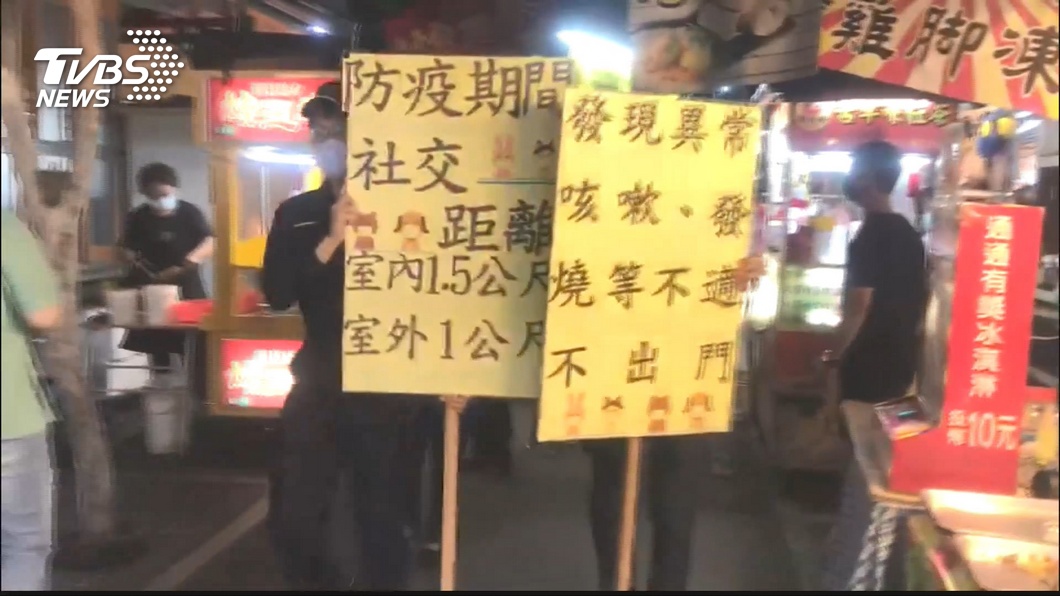 TVBS
NEWS
防疫期間
社交
距離
室內1.5公尺
室外1公尺
發現異常
咳嗽、發
燒等不適
不出門
雞腳凍
通通有獎冰淇淋
10元